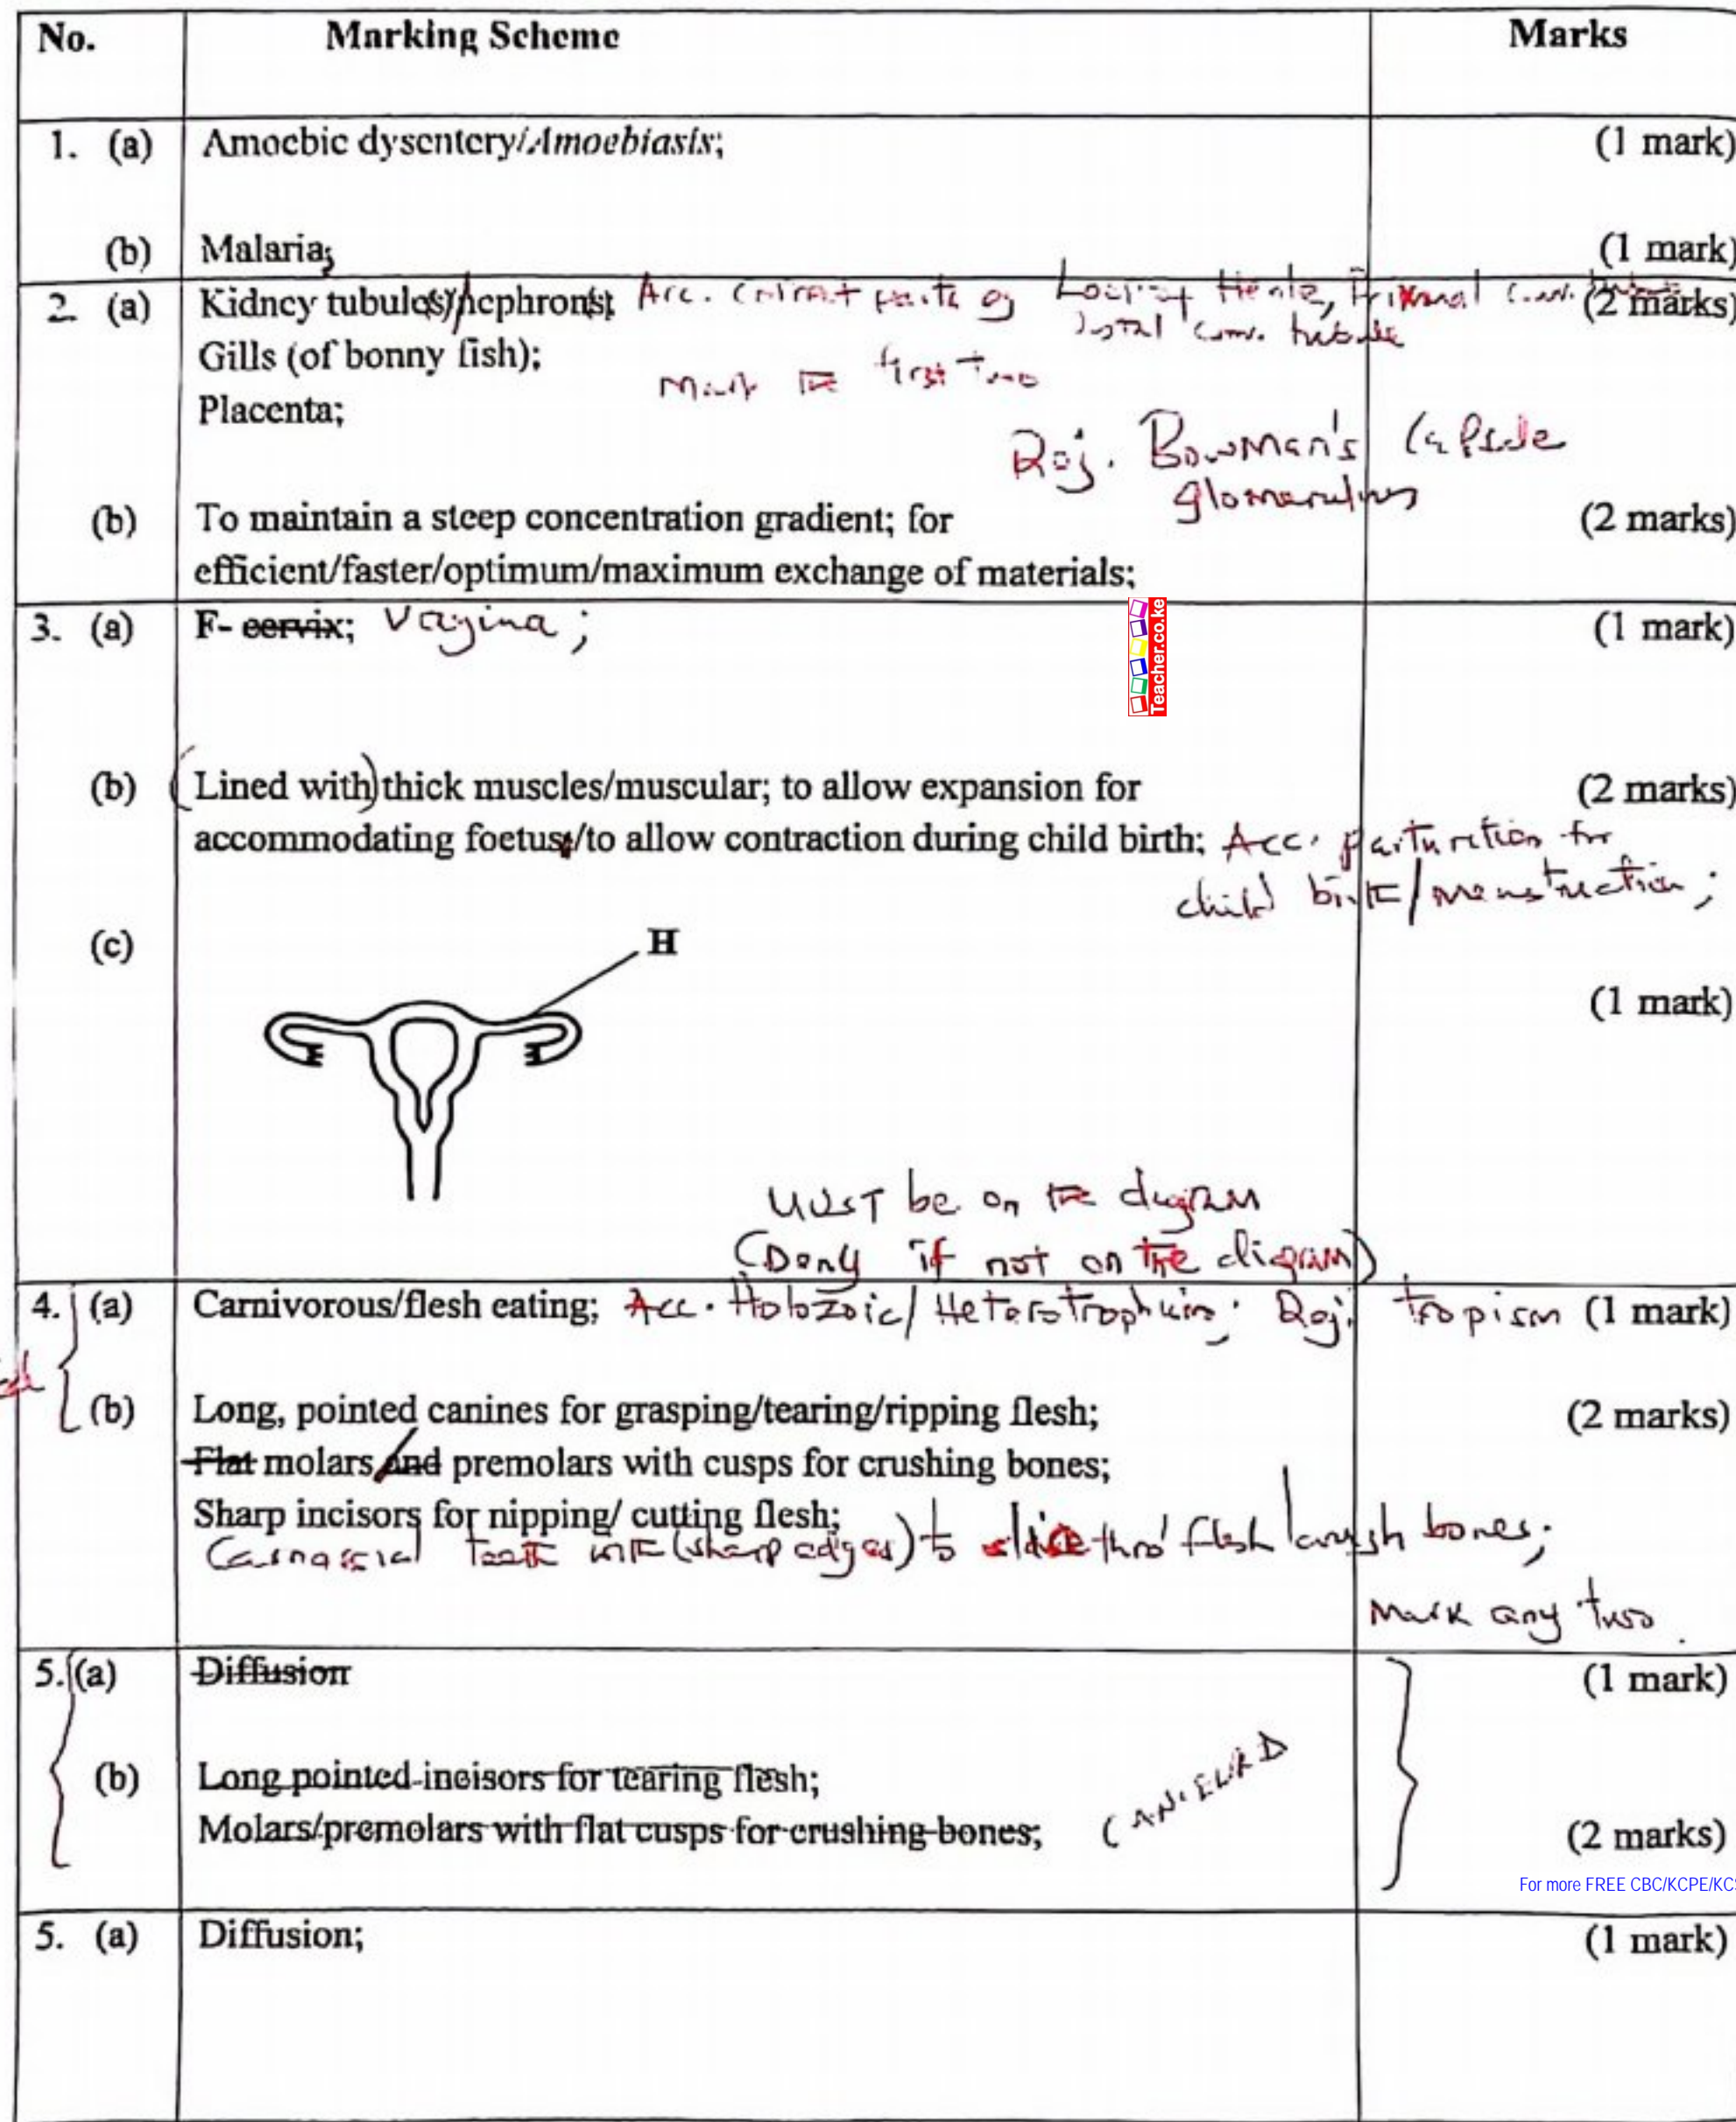 No. Marking Scheme Marks
1. (a) Amoebic dysentery/Amoebiasis; (1 mark)
(b) Malaria; (1 mark)
2 (a) Kidney tubule(s)/nephron(s); Acc. correct parts eg Loop of Henle, Proximal conv. (2 marks)
Distal conv. tubule
Gills (of bonny fish);
Mark the first two
Placenta;
Rej. Bowman's Capsule
glomerulus
(b) To maintain a steep concentration gradient; for (2 marks)
efficient/faster/optimum/maximum exchange of materials;
3. (a) F- cervix; Vagina; (1 mark)
Teacher.co.ke
(b) (Lined with) thick muscles/muscular; to allow expansion for (2 marks)
accommodating foetus;/to allow contraction during child birth; Acc. parturition for
child birth/menstruation;
(c) H
(1 mark)
MUST be on the diagram
(Deny if not on the diagram)
4. (a) Carnivorous/flesh eating; Acc. Holozoic/Heterotrophism; Rej. tropism (1 mark)
(b) Long, pointed canines for grasping/tearing/ripping flesh; (2 marks)
Flat molars/and premolars with cusps for crushing bones;
Sharp incisors for nipping/ cutting flesh;
Carnassial teeth with (sharp edges) to slice thro' flesh/crush bones;
Mark any two.
5. (a) Diffusion (1 mark)
(b) Long pointed incisors for tearing flesh;
CANCELLED
Molars/premolars with flat cusps for crushing bones; (2 marks)
For more FREE CBC/KCPE/KCS
5. (a) Diffusion; (1 mark)